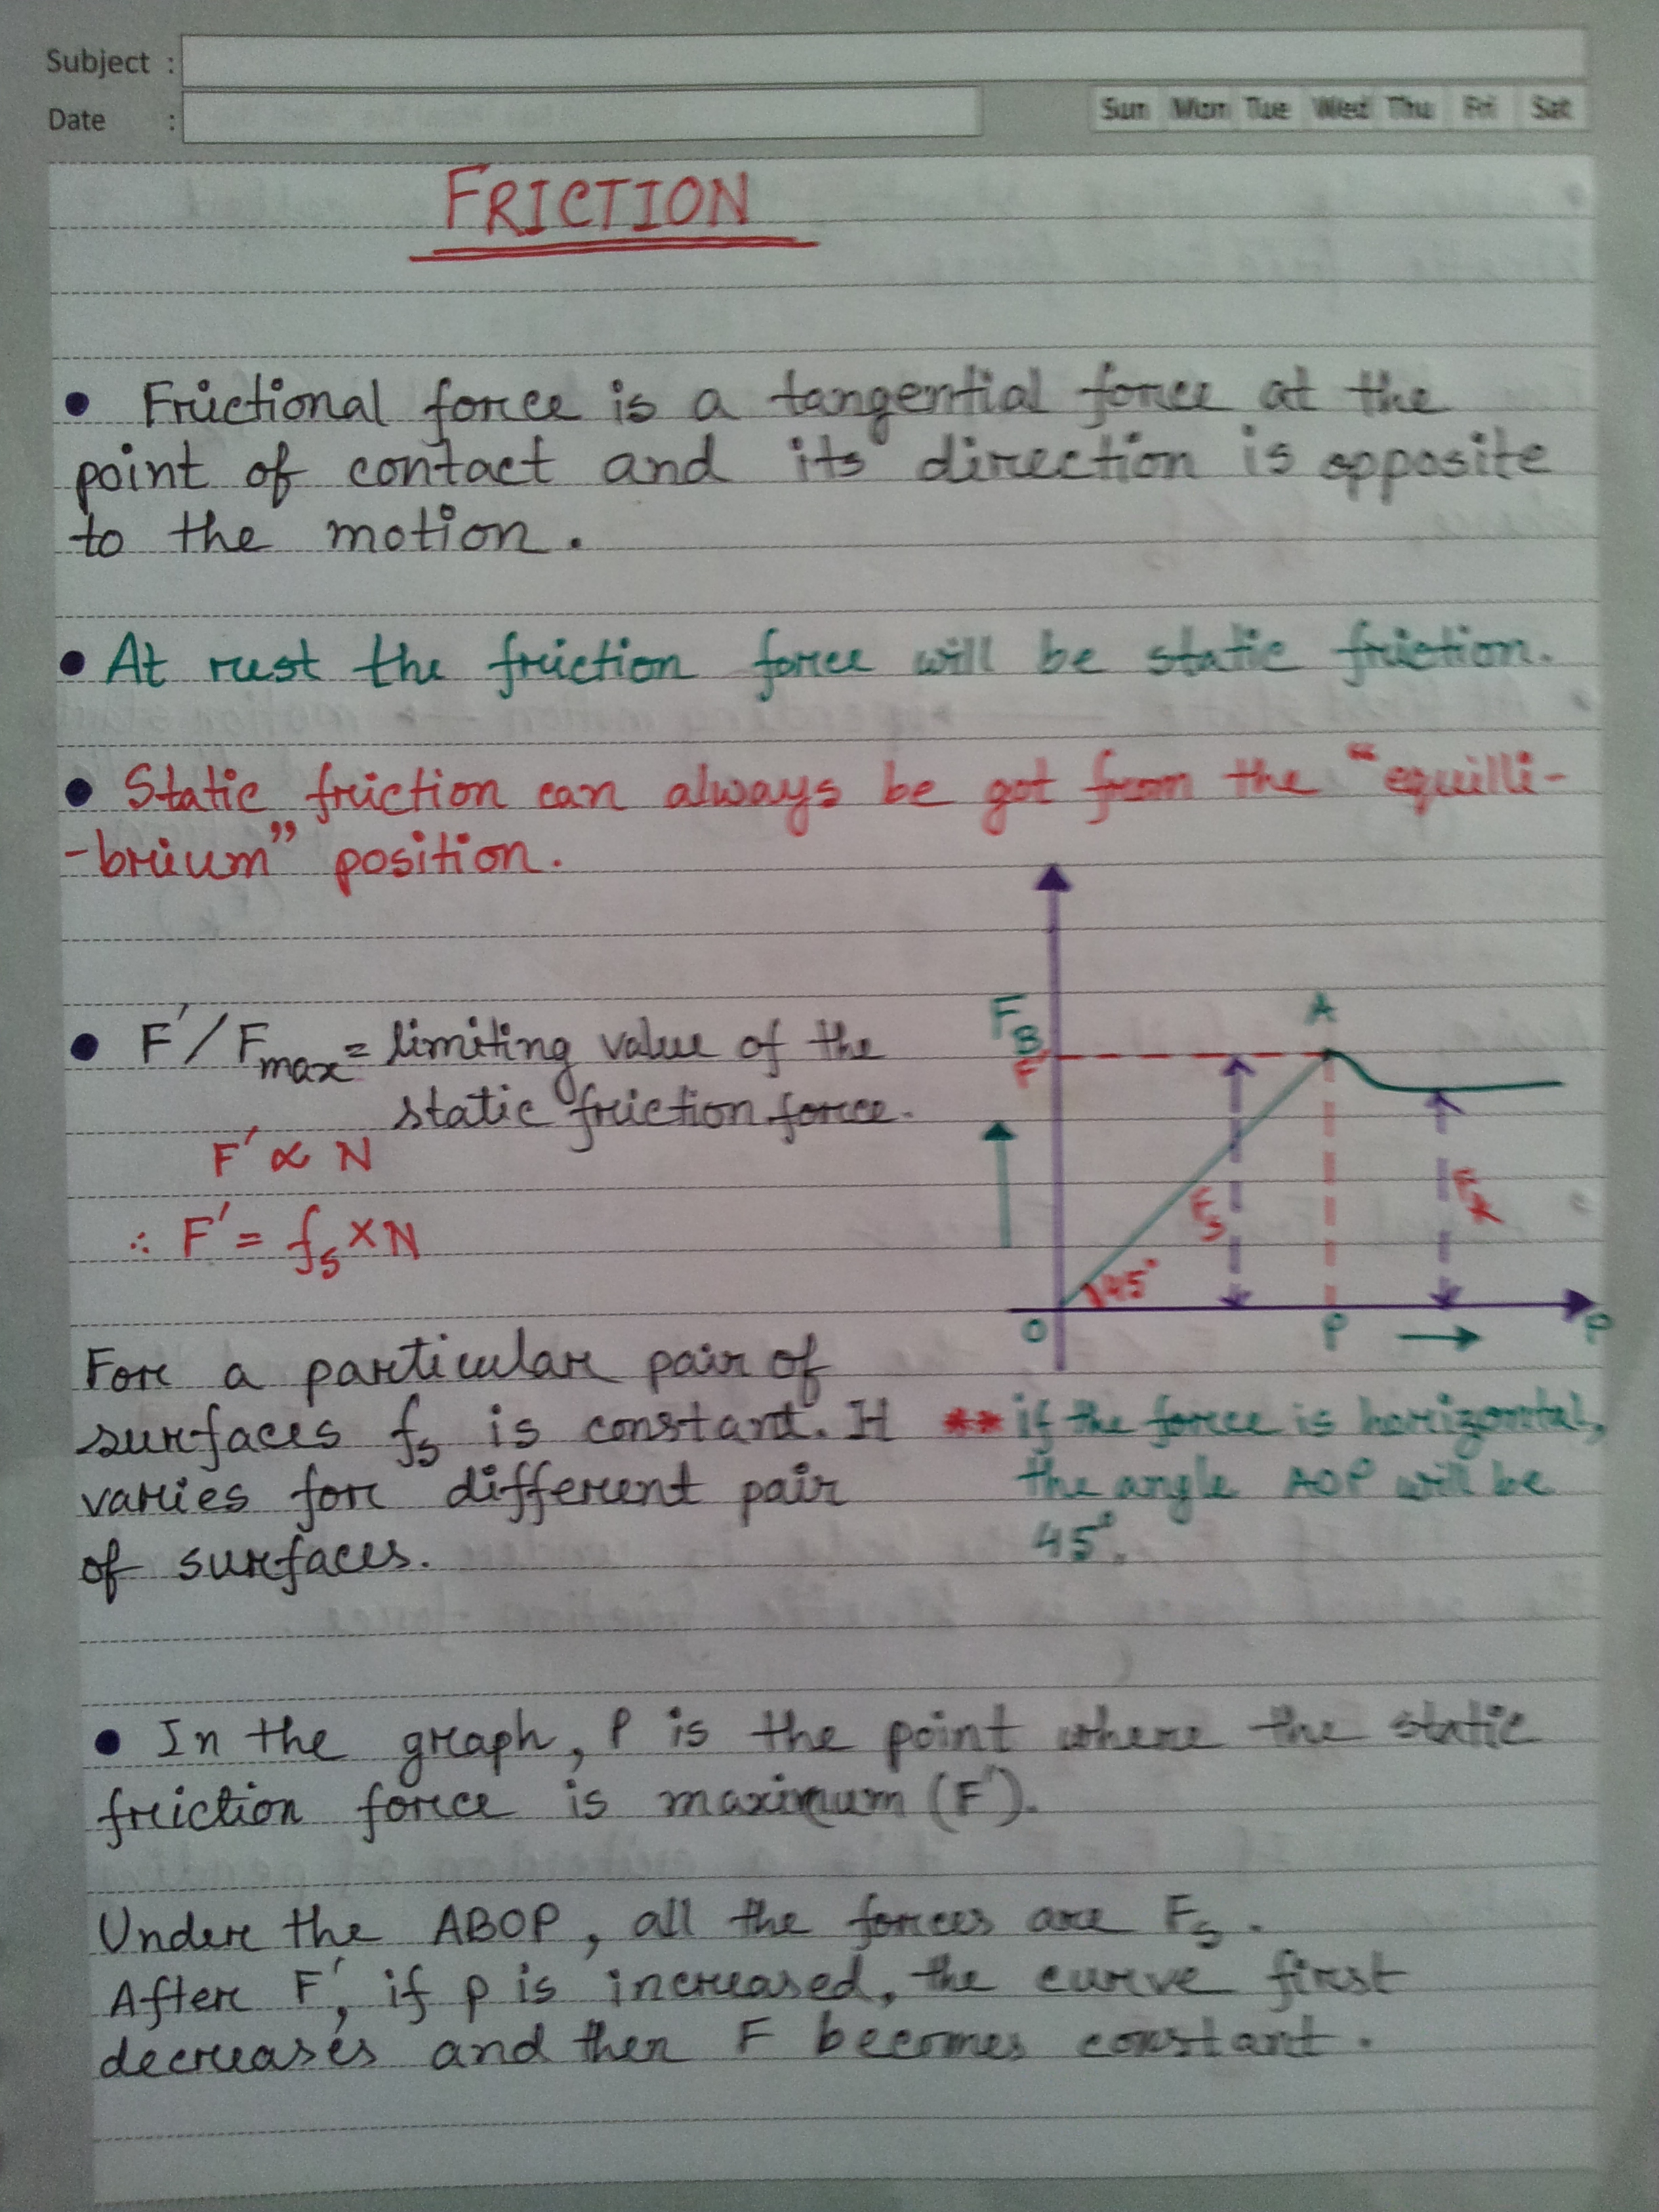 Subject :
Date :
Sun Mon Tue Wed Thu Fri Sat
FRICTION
• Frictional force is a tangential force at the
point of contact and its direction is opposite
to the motion.
• At rest the friction force will be static friction.
• Static friction can always be got from the "equilli-
-brium" position.
• F'/Fmax = limiting value of the
static friction force.
F' ∝ N
∴ F' = fs × N
F
B
F'
A
Fs
Fk
45°
O
P
P
For a particular pair of
surfaces fs is constant. It
varies for different pair
of surfaces.
** if the force is horizontal,
the angle AOP will be
45°.
• In the graph, P is the point where the static
friction force is maximum (F').
Under the ABOP, all the forces are Fs.
After F', if p is increased, the curve first
decreases and then F becomes constant.